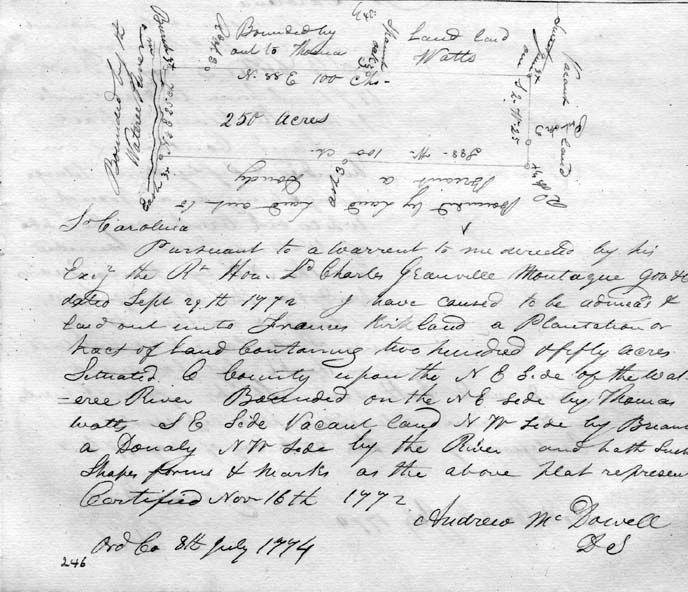 Bounded by Land laid
out to Thomas Watts
N. 88 E 100 Chs-
250 acres
Bounded by th
Wateree River
Vacant Land
S 2. W. 25
S88. W. 100 ch.
Bounded by Land laid out to
Ash 3
So Carolina
Pursuant to a warrent to me directed by his
Excy the Rt Hon. Ld Charles Greanville Montague Gov &c
dated Sept 29th 1772 I have caused to be admeas &
laid out unto Frances Kirkland a Plantation or
tract of Land Containing two hundred & fifty acres
Situated C County upon the N E Side of the Wat
-eree River Bounded on the N E side by Thomas
Watts S E Side Vacant land N W side by
a N W side by the River and hath Such
Shapes forms & marks as the above plat represen
Certified Nov 16th 1772
Andrew Mc Dowell
D S
Ord Co 8th July 1774
246